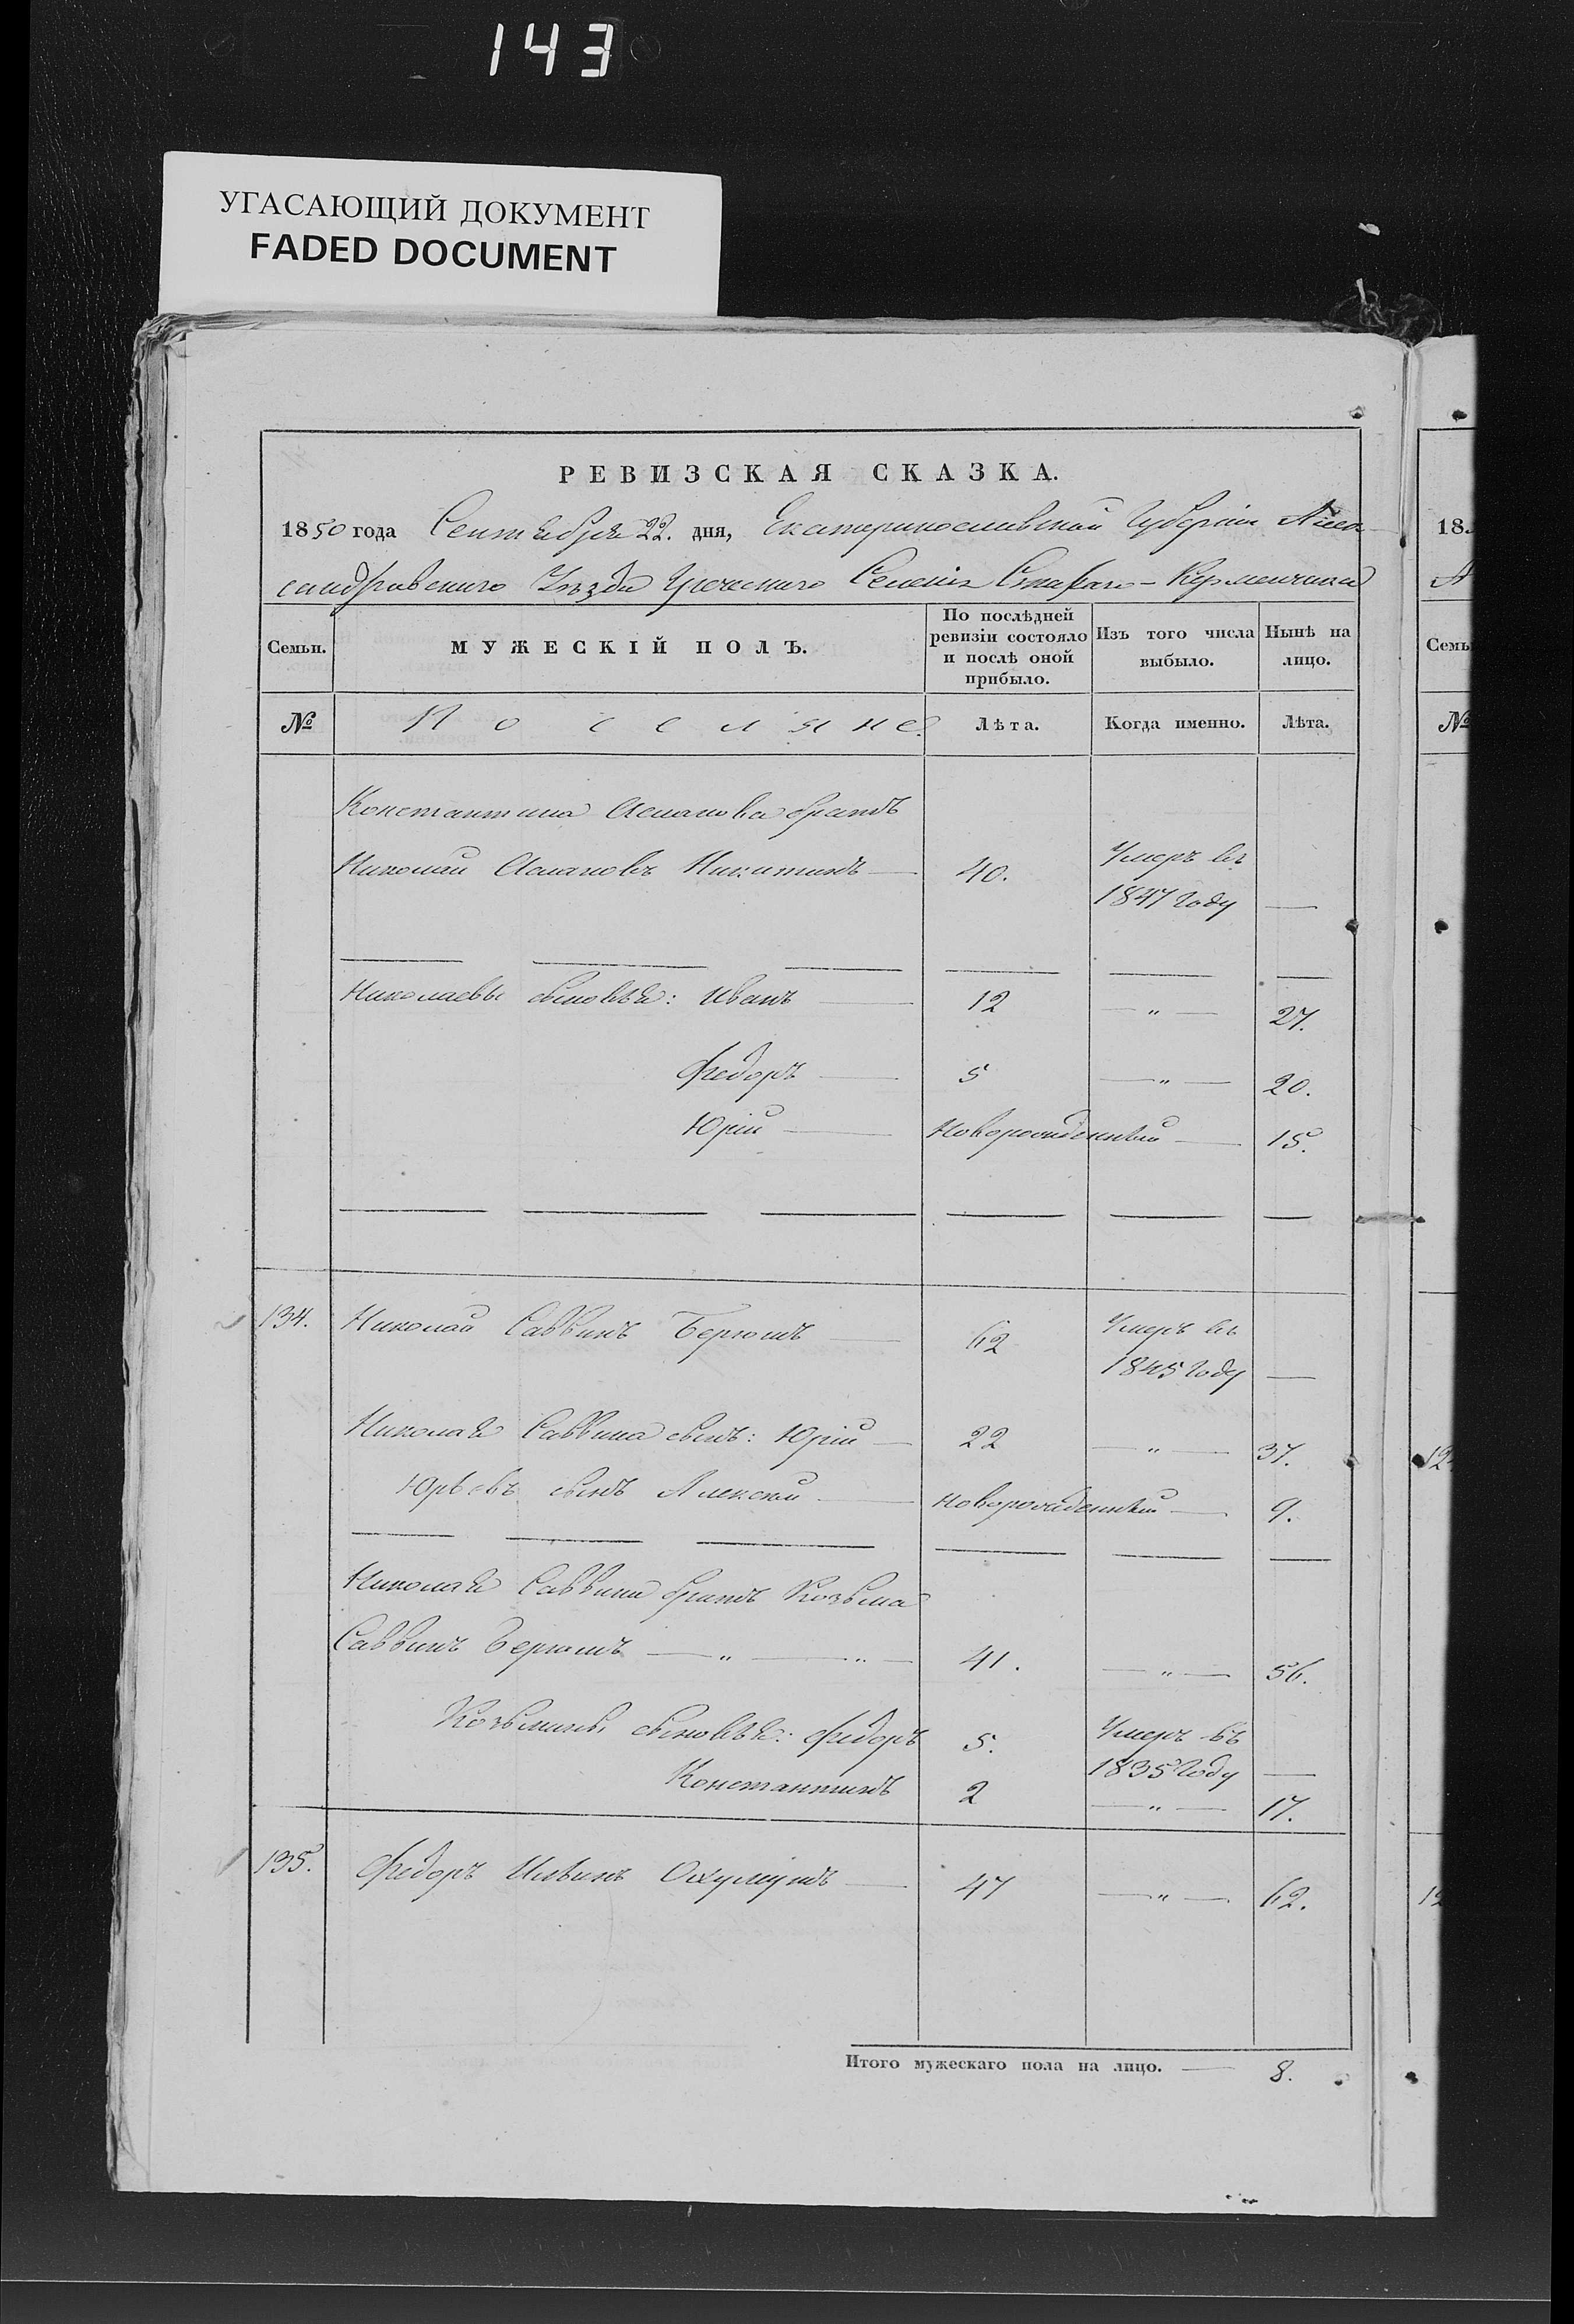 143
УГАСАЮЩИЙ ДОКУМЕНТ
FADED DOCUMENT
РЕВИЗСКАЯ СКАЗКА.
1850 года Сентября 22. дня, Екатеринославской Губернии Алек
сандровскаго Уѣзда Греческаго Селенія Стараго-Керменчика
Семьи.
МУЖЕСКІЙ ПОЛЪ.
По послѣдней ревизіи состояло и послѣ оной прибыло.
Изъ того числа выбыло.
Нынѣ на лицо.
№
Поселяне.
Лѣта.
Когда именно.
Лѣта.
Константина Асланова братъ
Николай Аслановъ Никитинъ — 40. Умеръ въ
1847 году —
Николаевы сыновья: Иванъ — 12 — „ — 27.
Федоръ — 5 — „ — 20.
Юрій — Новорожденный — 15.
134. Николай Саввинъ — 62 Умеръ въ
1845 году —
Николая Саввина сынъ: Юрій — 22 — „ — 37.
Юрьевъ сынъ Алексей — новорожденный — 9.
Николая Саввина братъ Козьма
Саввинъ — „ — „ — 41. — „ — 56.
Козьмины сыновья: Федоръ 5. Умеръ въ
1835 году —
Константинъ 2 — „ — 17.
135. Федоръ Ильинъ — 47 — „ — 62.
Итого мужескаго пола на лицо. — 8.
18
Семь
№